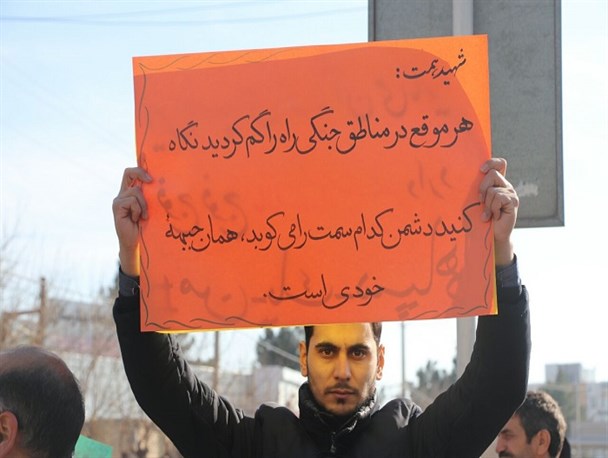 شهید همت:
هر موقع در مناطق جنگی راه را گم کردید نگاه
کنید دشمن کدام سمت را می کوبد، همان جبههٔ
خودی است.